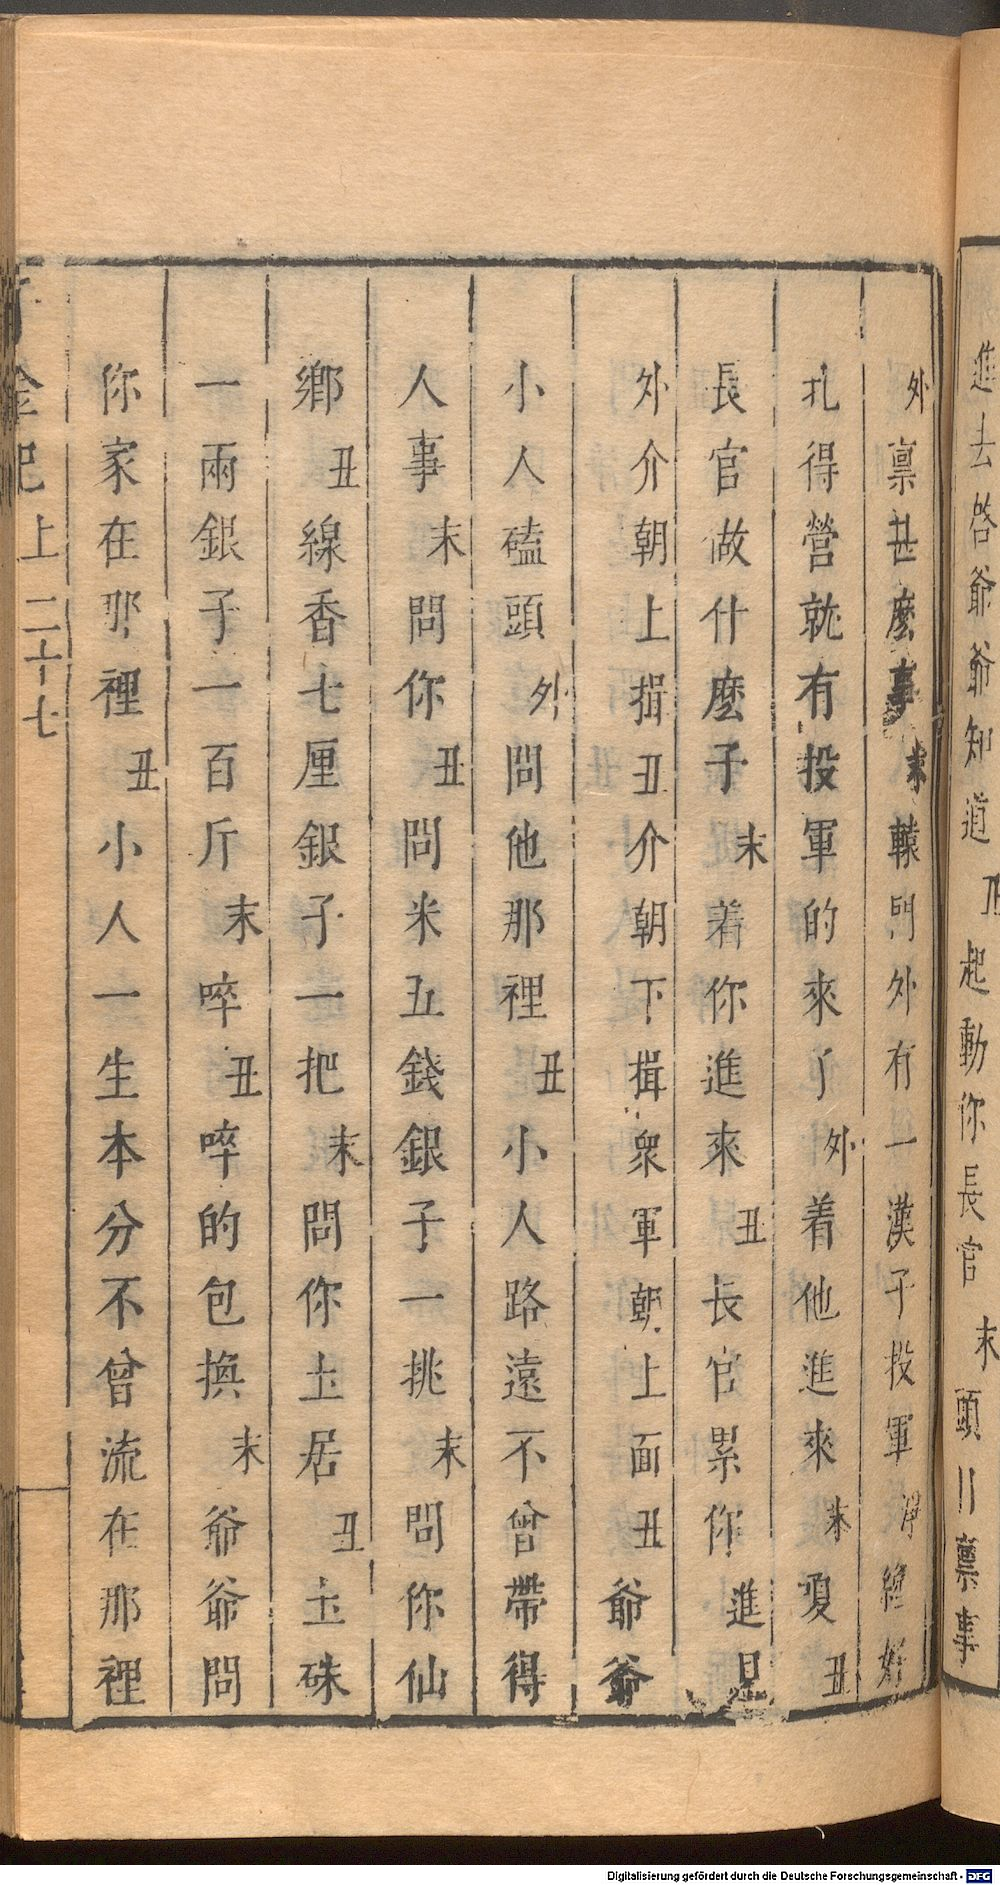 進去啓爺爺知道 丑 起動你長官 末 頭目禀事
外 禀甚麼事 末 轅門外有一漢子投軍 淨 纔好
扎得營就有投軍的來了 外 着他進來 末 夏 丑
長官做什麼子 末 着你進來 丑 長官累你 進見
外介朝上揖丑介朝下揖衆軍朝上面丑爺爺
小人磕頭 外 問他那裡 丑 小人路遠不曾帶得
人事 末 問你 丑 問米五錢銀子一挑 末 問你仙
鄉 丑 線香七厘銀子一把 末 問你土居 丑 土硃
一兩銀子一百斤 末 啐 丑 啐的包換 末 爺爺問
你家在那裡 丑 小人一生本分不曾流在那裡
金 上 二十七
Digitalisierung gefördert durch die Deutsche Forschungsgemeinschaft - DFG